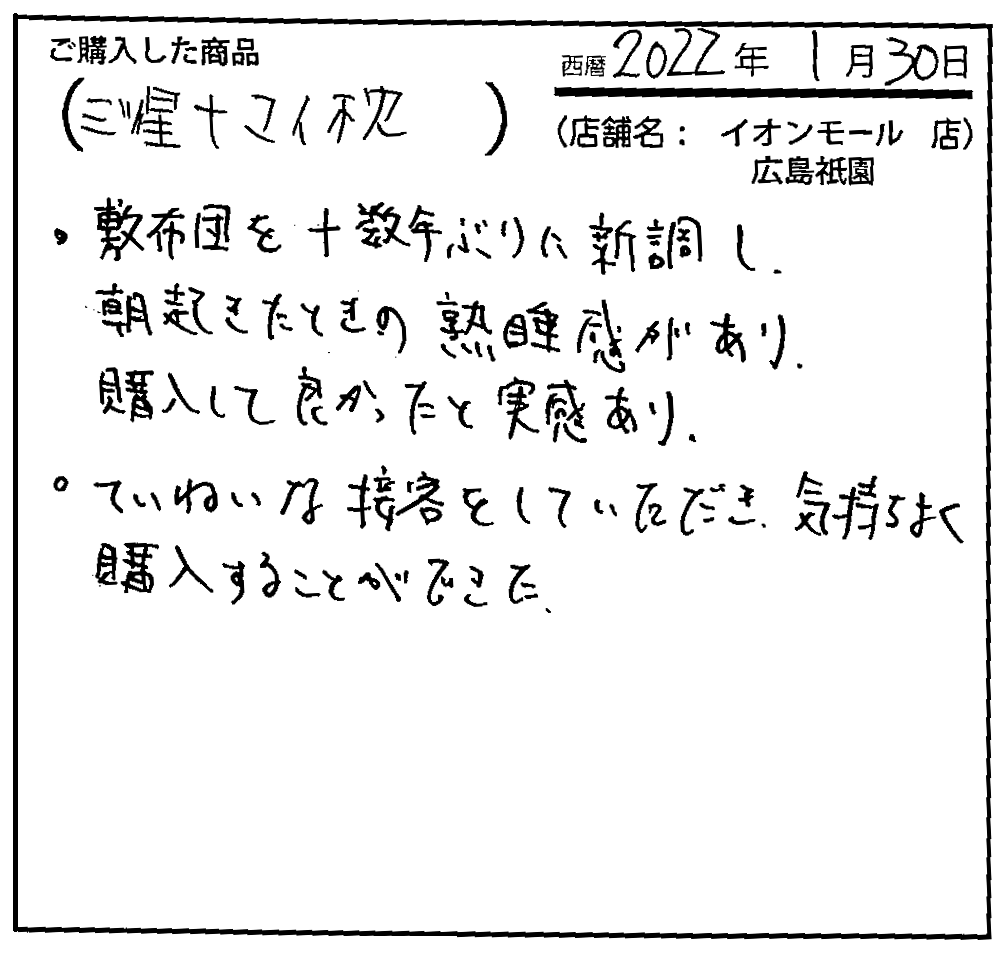 ご購入した商品
西暦2022年 1月30日
(ミツ星+マイ枕 )
(店舗名： イオンモール 店)
広島祇園
・敷布団を十数年ぶりに新調し、
朝起きたときの熟睡感があり、
購入して良かったと実感あり。
・ていねいな接客をしていただき、気持ちよく
購入することができた。